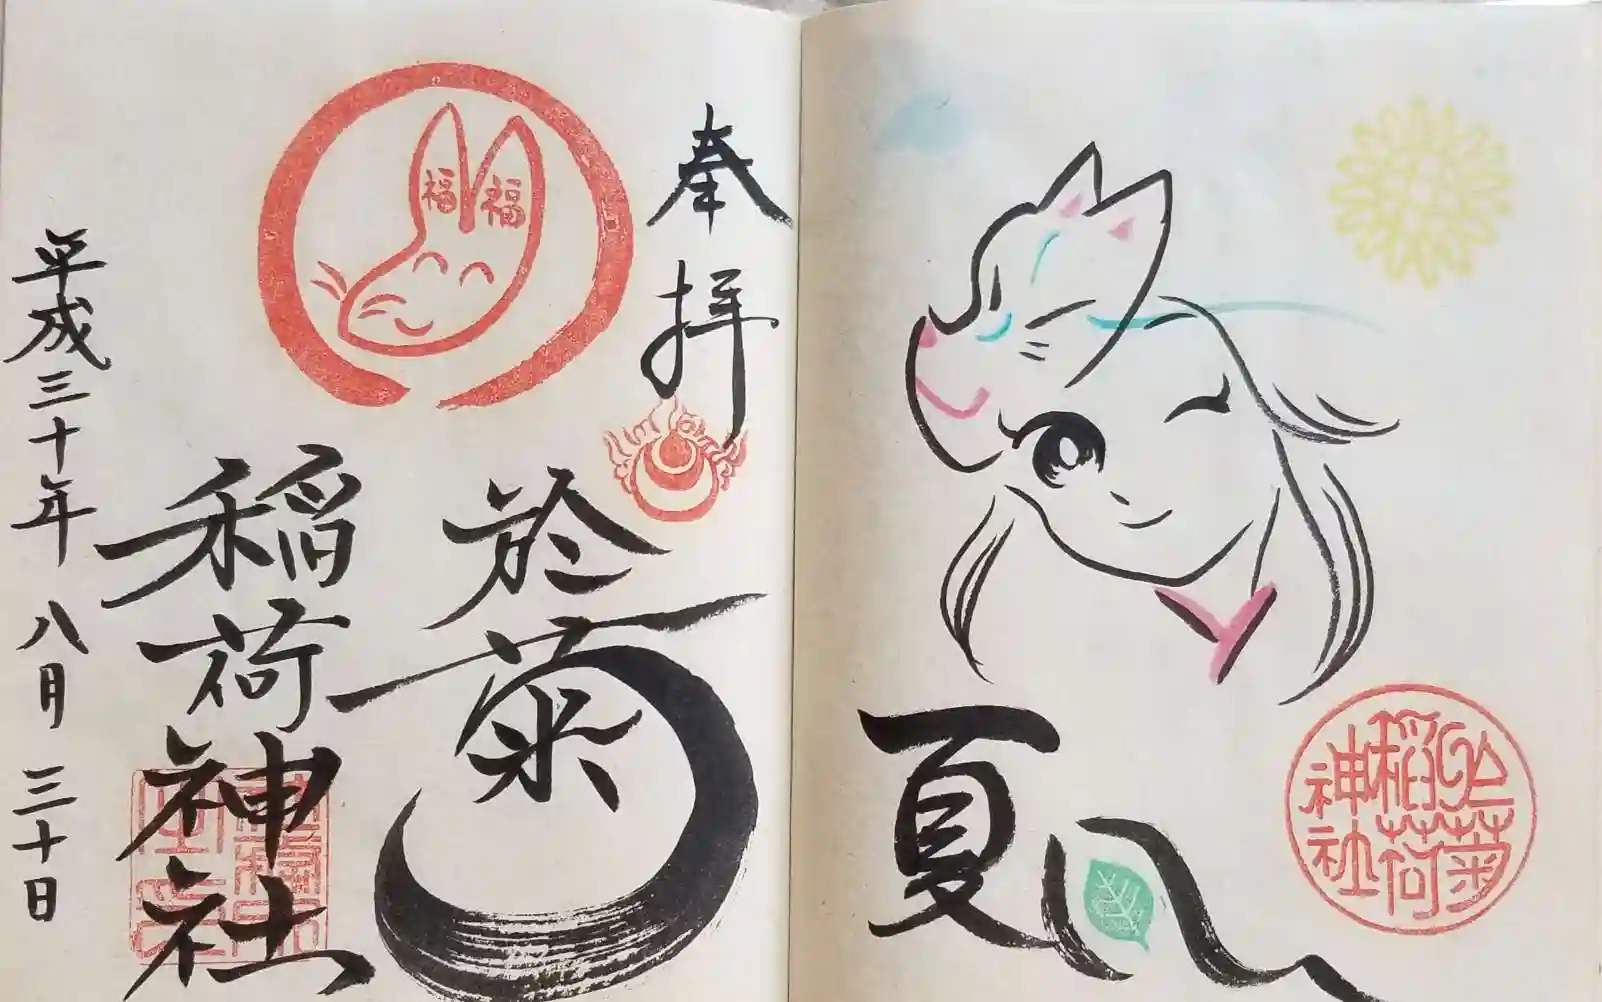 奉拝
福福
於菊
稲荷神社
平成三十年 八月 三十日
夏
於菊
稲荷
神社